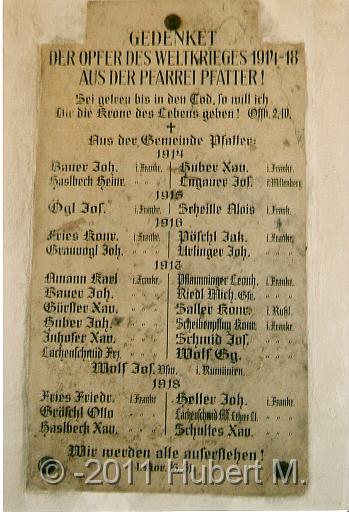 GEDENKET
DER OPFER DES WELTKRIEGES 1914-18
AUS DER PFARREI PFATTER!
Sei getreu bis in den Tod, so will ich
Dir die Krone des Lebens geben! Offb. 2,10.
Aus der Gemeinde Pfatter:
1914
Bauer Joh. i. Frankr. Huber Xav. i. Frankr.
Haslbeck Heinr. " " Lugauer Jos. i.
1915
Ögl Jos. i. Frankr. Scheifle Alois i. Frank.
1916
Fries Konr. i. Frankr. Pöschl Jak. i. Frankr.
Grauvogl Joh. " " Urlinger Joh. " "
1917
Amann Karl i. Frankr. Pflamminger Leonh. i. Frankr.
Bauer Joh. " " Riedl Mich. " "
Gürster Xav. " " Saller Konr. i. Rußl.
Huber Joh. " " Scheibenpflug Konr. i. Frankr.
Inhofer Xav. " " Schmid Jos. " "
Lachenschmid Frz. " " Wolf Gg. " "
Wolf Jos. i. Rumänien.
1918
Fries Friedr. i. Frankr. Heller Joh. i. Frankr.
Gröschl Otto " " Lachenschmid
Haslbeck Xav. " " Schultes Xav. " "
Wir werden alle auferstehen!
1. Kor.
© -2011 Hubert M.